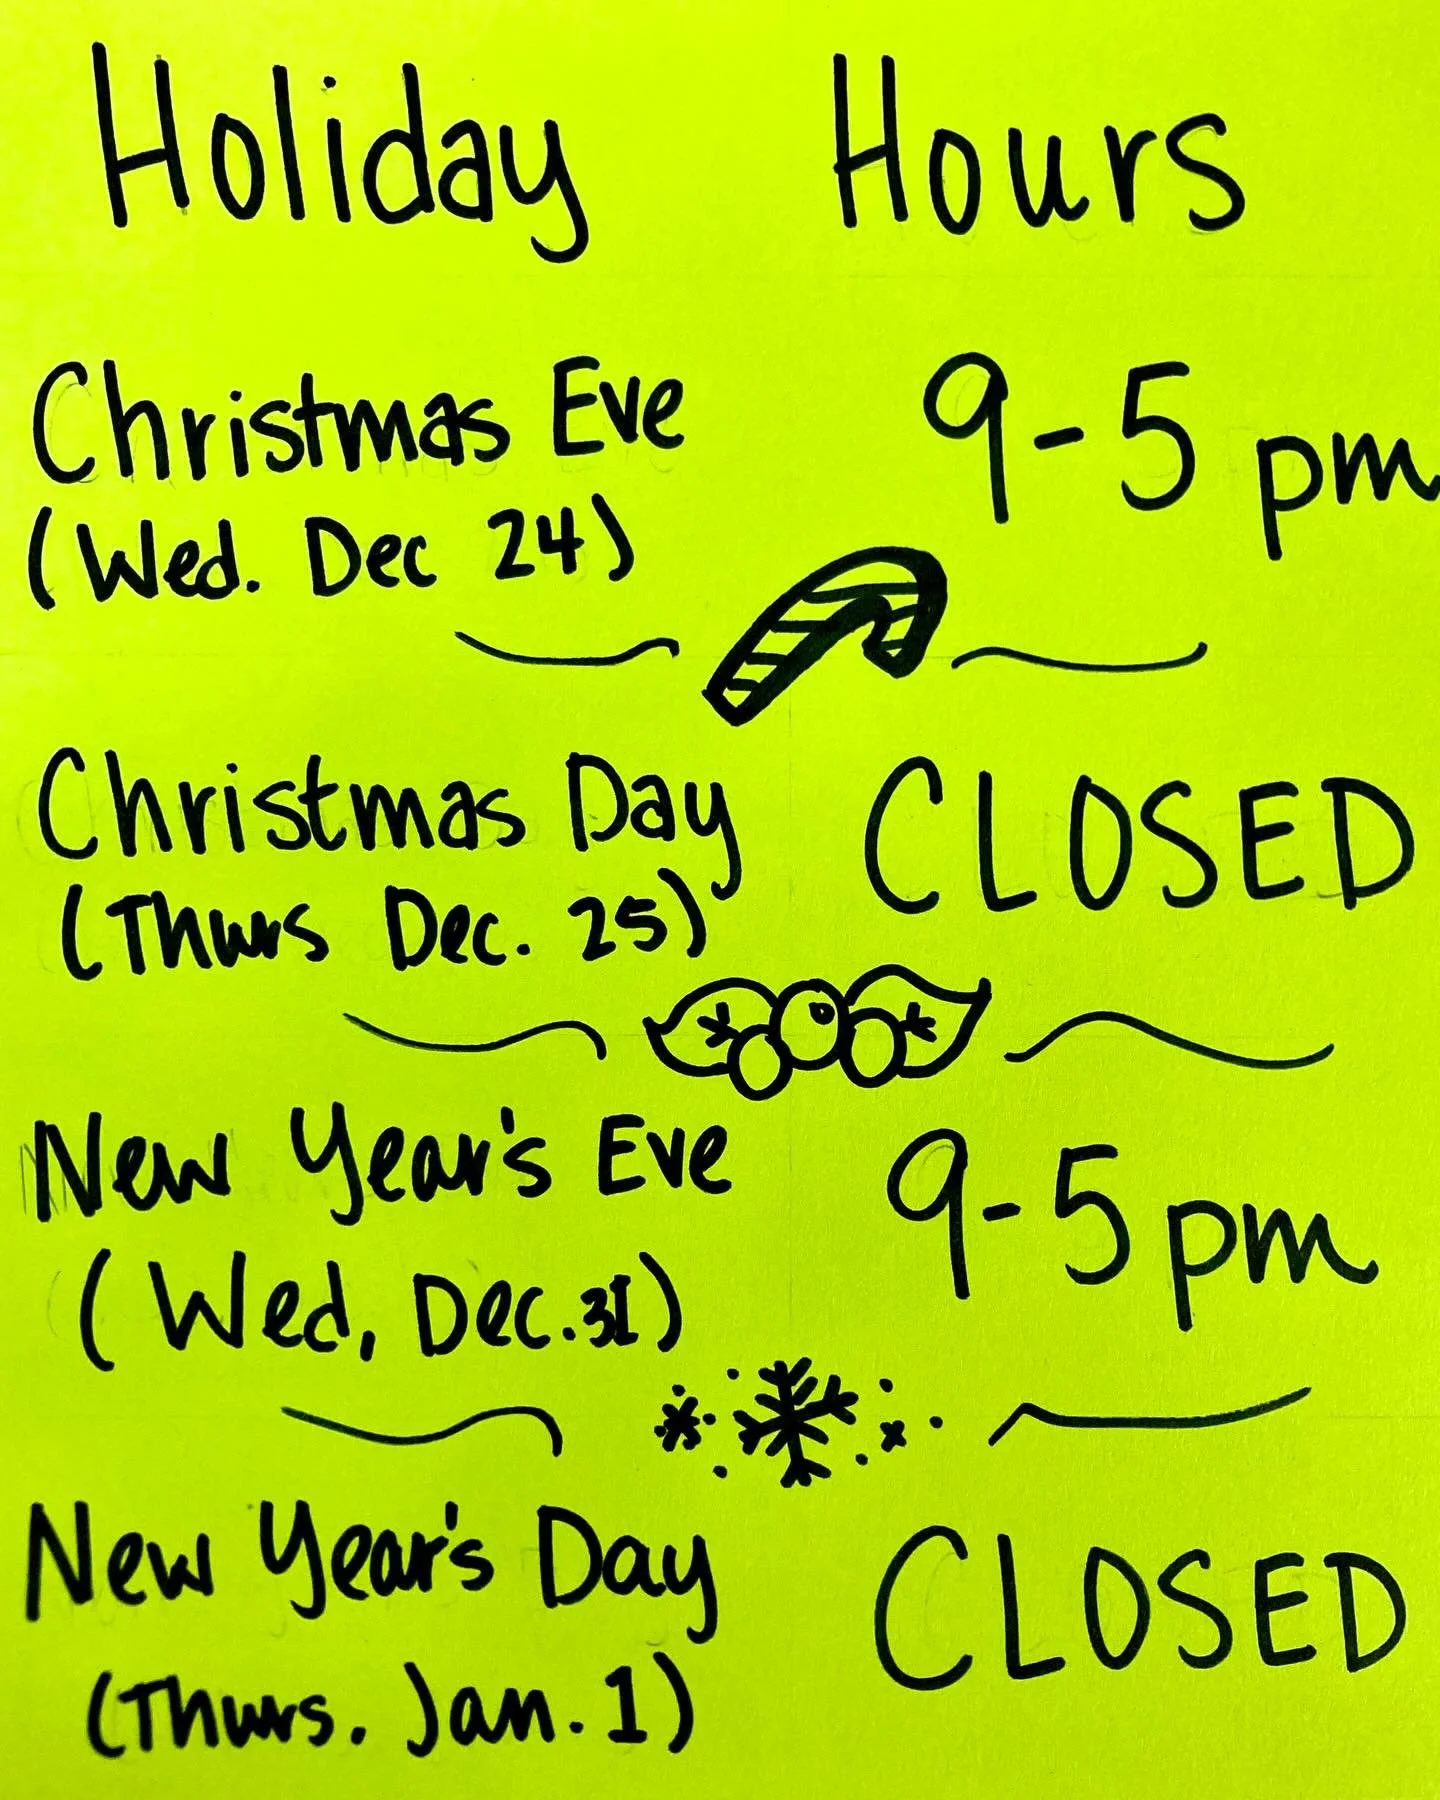 Holiday Hours
Christmas Eve 9-5 pm
(Wed. Dec 24)
Christmas Day CLOSED
(Thurs Dec. 25)
New Year's Eve 9-5 pm
(Wed, Dec. 31)
New Year's Day CLOSED
(Thurs. Jan. 1)